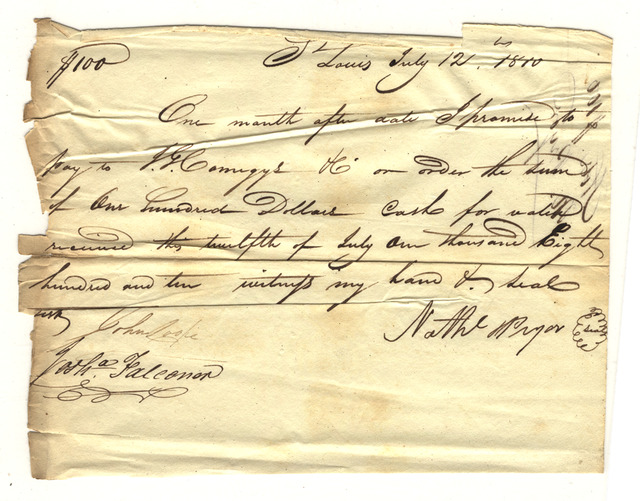 $100 St Louis July 12th 1810
One month after date I promise to
pay to V. G. Comegys & Co or order the sum
of One hundred Dollars Cash for value
received this twelfth of July One thousand Eight
hundred and ten witness my hand & seal
Nathl Pryor seal
John
Josha Falconor